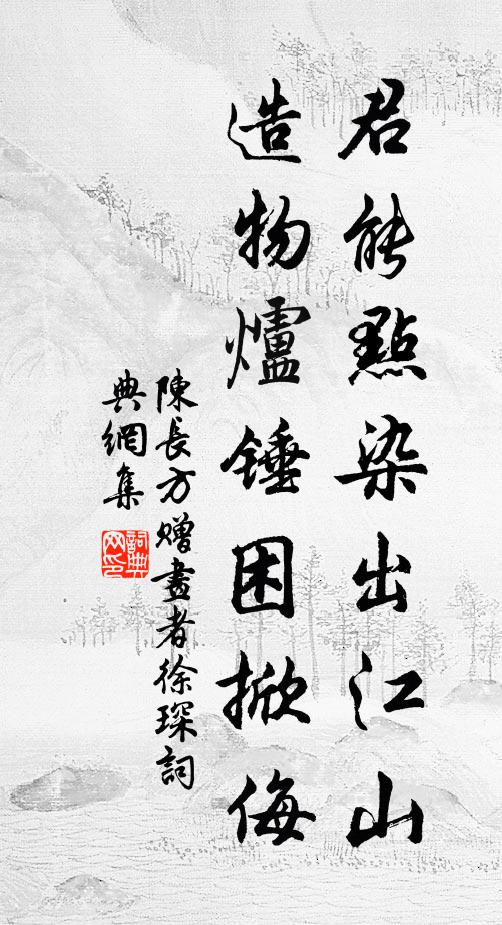 君能點染出江山
造物爐錘困掀侮
陳長方贈畫者徐琛詞
典網集
詞典
网印